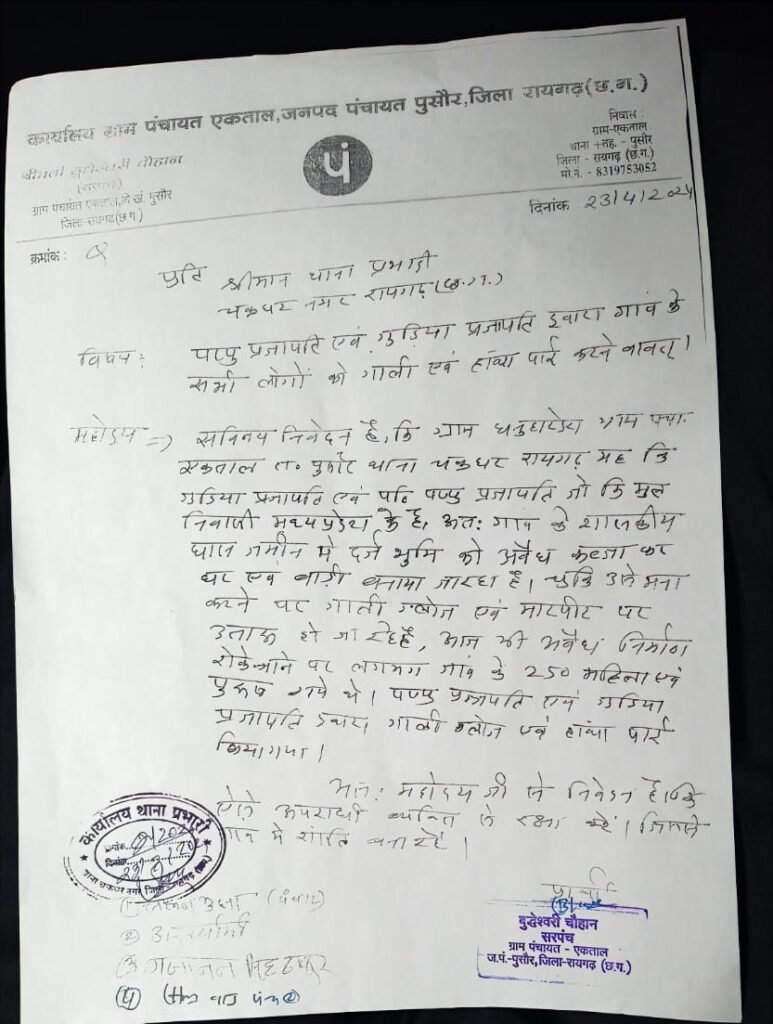 कार्यालय ग्राम पंचायत एकताल,जनपद पंचायत पुसौर,जिला रायगढ़(छ.ग.)
श्रीमती बुधेश्वरी चौहान
(सरपंच)
ग्राम पंचायत एकताल,वि.खं. पुसौर
जिला-रायगढ़(छ.ग.)
पं
निवास :
ग्राम-एकताल
थाना +तह. - पुसौर
जिला - रायगढ़ (छ.ग.)
मो.नं. - 8319753052
क्रमांक :
दिनांक 23/4/2024
प्रति श्रीमान थाना प्रभारी
चक्रधर नगर रायगढ़(छ.ग.)
विषय : पप्पु प्रजापति एवं गुडिया प्रजापति द्वारा गांव के
सभी लोगों को गाली एवं हांथा पाई करने बाबत्।
महोदय => सविनय निवेदन है, कि ग्राम धनुहारडेरा ग्राम पंचा.
एकताल त. पुसौर थाना चक्रधर रायगढ़ यह कि
गुडिया प्रजापति एवं पति पप्पु प्रजापति जो कि मुल
निवासी मध्यप्रदेश के है, अतः गांव के शासकीय
घास जमीन मे दर्ज भुमि को अवैध कब्जा कर
घर एवं बाड़ी बनाया जा रहा है। चुकि उसे मना
करने पर गाली ग्लोज एवं मारपीट पर
उतारू हो जा रहे है, आज भी अवैध निर्माण
रोके जाने पर लगभग गांव के 250 महिला एवं
पुरुष गये थे। पप्पु प्रजापति एवं गुडिया
प्रजापति द्वारा गाली ग्लोज एवं हांथा पाई
किया गया।
अतः महोदय जी से निवेदन है। कि
ऐसे अपराधी व्यक्ति से रक्षा करें। जिससे
गांव मे शांति बना रहे।
कार्यालय थाना प्रभारी
दिनांक
थाना चक्रधर नगर जिला रायगढ़ (छ.ग.)
प्रार्थी
बुद्धेश्वरी चौहान
सरपंच
ग्राम पंचायत - एकताल
ज.पं.-पुसौर,जिला-रायगढ़ (छ.ग.)
① (पंचायत)
②
③ गजानन सिंह ठाकुर
④